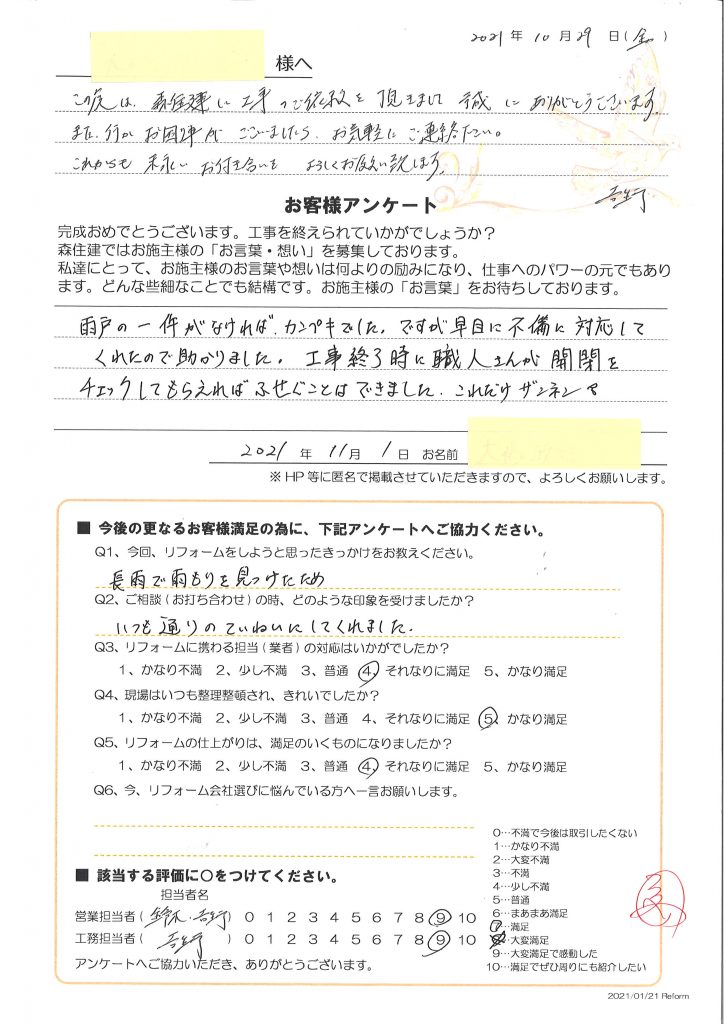 2021年 10月 29日(金)
様へ
この度は、森住建に工事のご依頼を頂きまして誠にありがとうございます。
また、何かお困り事がございましたら、お気軽にご連絡下さい。
これからも末永いお付き合いをよろしくお願い致します。
お客様アンケート
完成おめでとうございます。工事を終えられていかがでしょうか?
森住建ではお施主様の「お言葉・想い」を募集しております。
私達にとって、お施主様のお言葉や想いは何よりの励みになり、仕事へのパワーの元でもあり
ます。どんな些細なことでも結構です。お施主様の「お言葉」をお待ちしております。
雨戸の一件がなければ、カンペキでした。ですが早目に不備に対応して
くれたので助かりました。工事終了時に職人さんが開閉を
チェックしてもらえればふせぐことはできました。これだけザンネン
2021年 11月 1日 お名前
※HP等に匿名で掲載させていただきますので、よろしくお願いします。
■ 今後の更なるお客様満足の為に、下記アンケートへご協力ください。
Q1、今回、リフォームをしようと思ったきっかけをお教えください。
長雨で雨もりを見つけたため
Q2、ご相談(お打ち合わせ)の時、どのような印象を受けましたか?
いつも通りのていねいにしてくれました.
Q3、リフォームに携わる担当(業者)の対応はいかがでしたか?
1、かなり不満 2、少し不満 3、普通 4、それなりに満足 5、かなり満足
Q4、現場はいつも整理整頓され、きれいでしたか?
1、かなり不満 2、少し不満 3、普通 4、それなりに満足 5、かなり満足
Q5、リフォームの仕上がりは、満足のいくものになりましたか?
1、かなり不満 2、少し不満 3、普通 4、それなりに満足 5、かなり満足
Q6、今、リフォーム会社選びに悩んでいる方へ一言お願いします。
0…不満で今後は取引したくない
1…かなり不満
2…大変不満
3…不満
4…少し不満
5…普通
6…まあまあ満足
7…満足
8…大変満足
9…大変満足で感動した
10…満足でぜひ周りにも紹介したい
■ 該当する評価に○をつけてください。
担当者名
営業担当者( 鈴木・ ) 0 1 2 3 4 5 6 7 8 9 10
工務担当者( ) 0 1 2 3 4 5 6 7 8 9 10
アンケートへご協力いただき、ありがとうございます。
2021/01/21 Reform